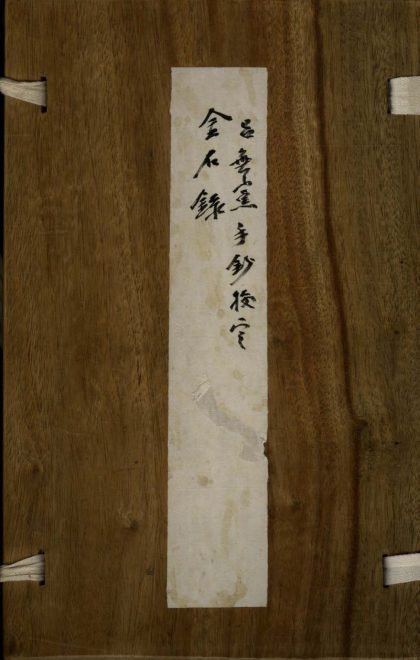 吕無黨手鈔挍定
金石錄